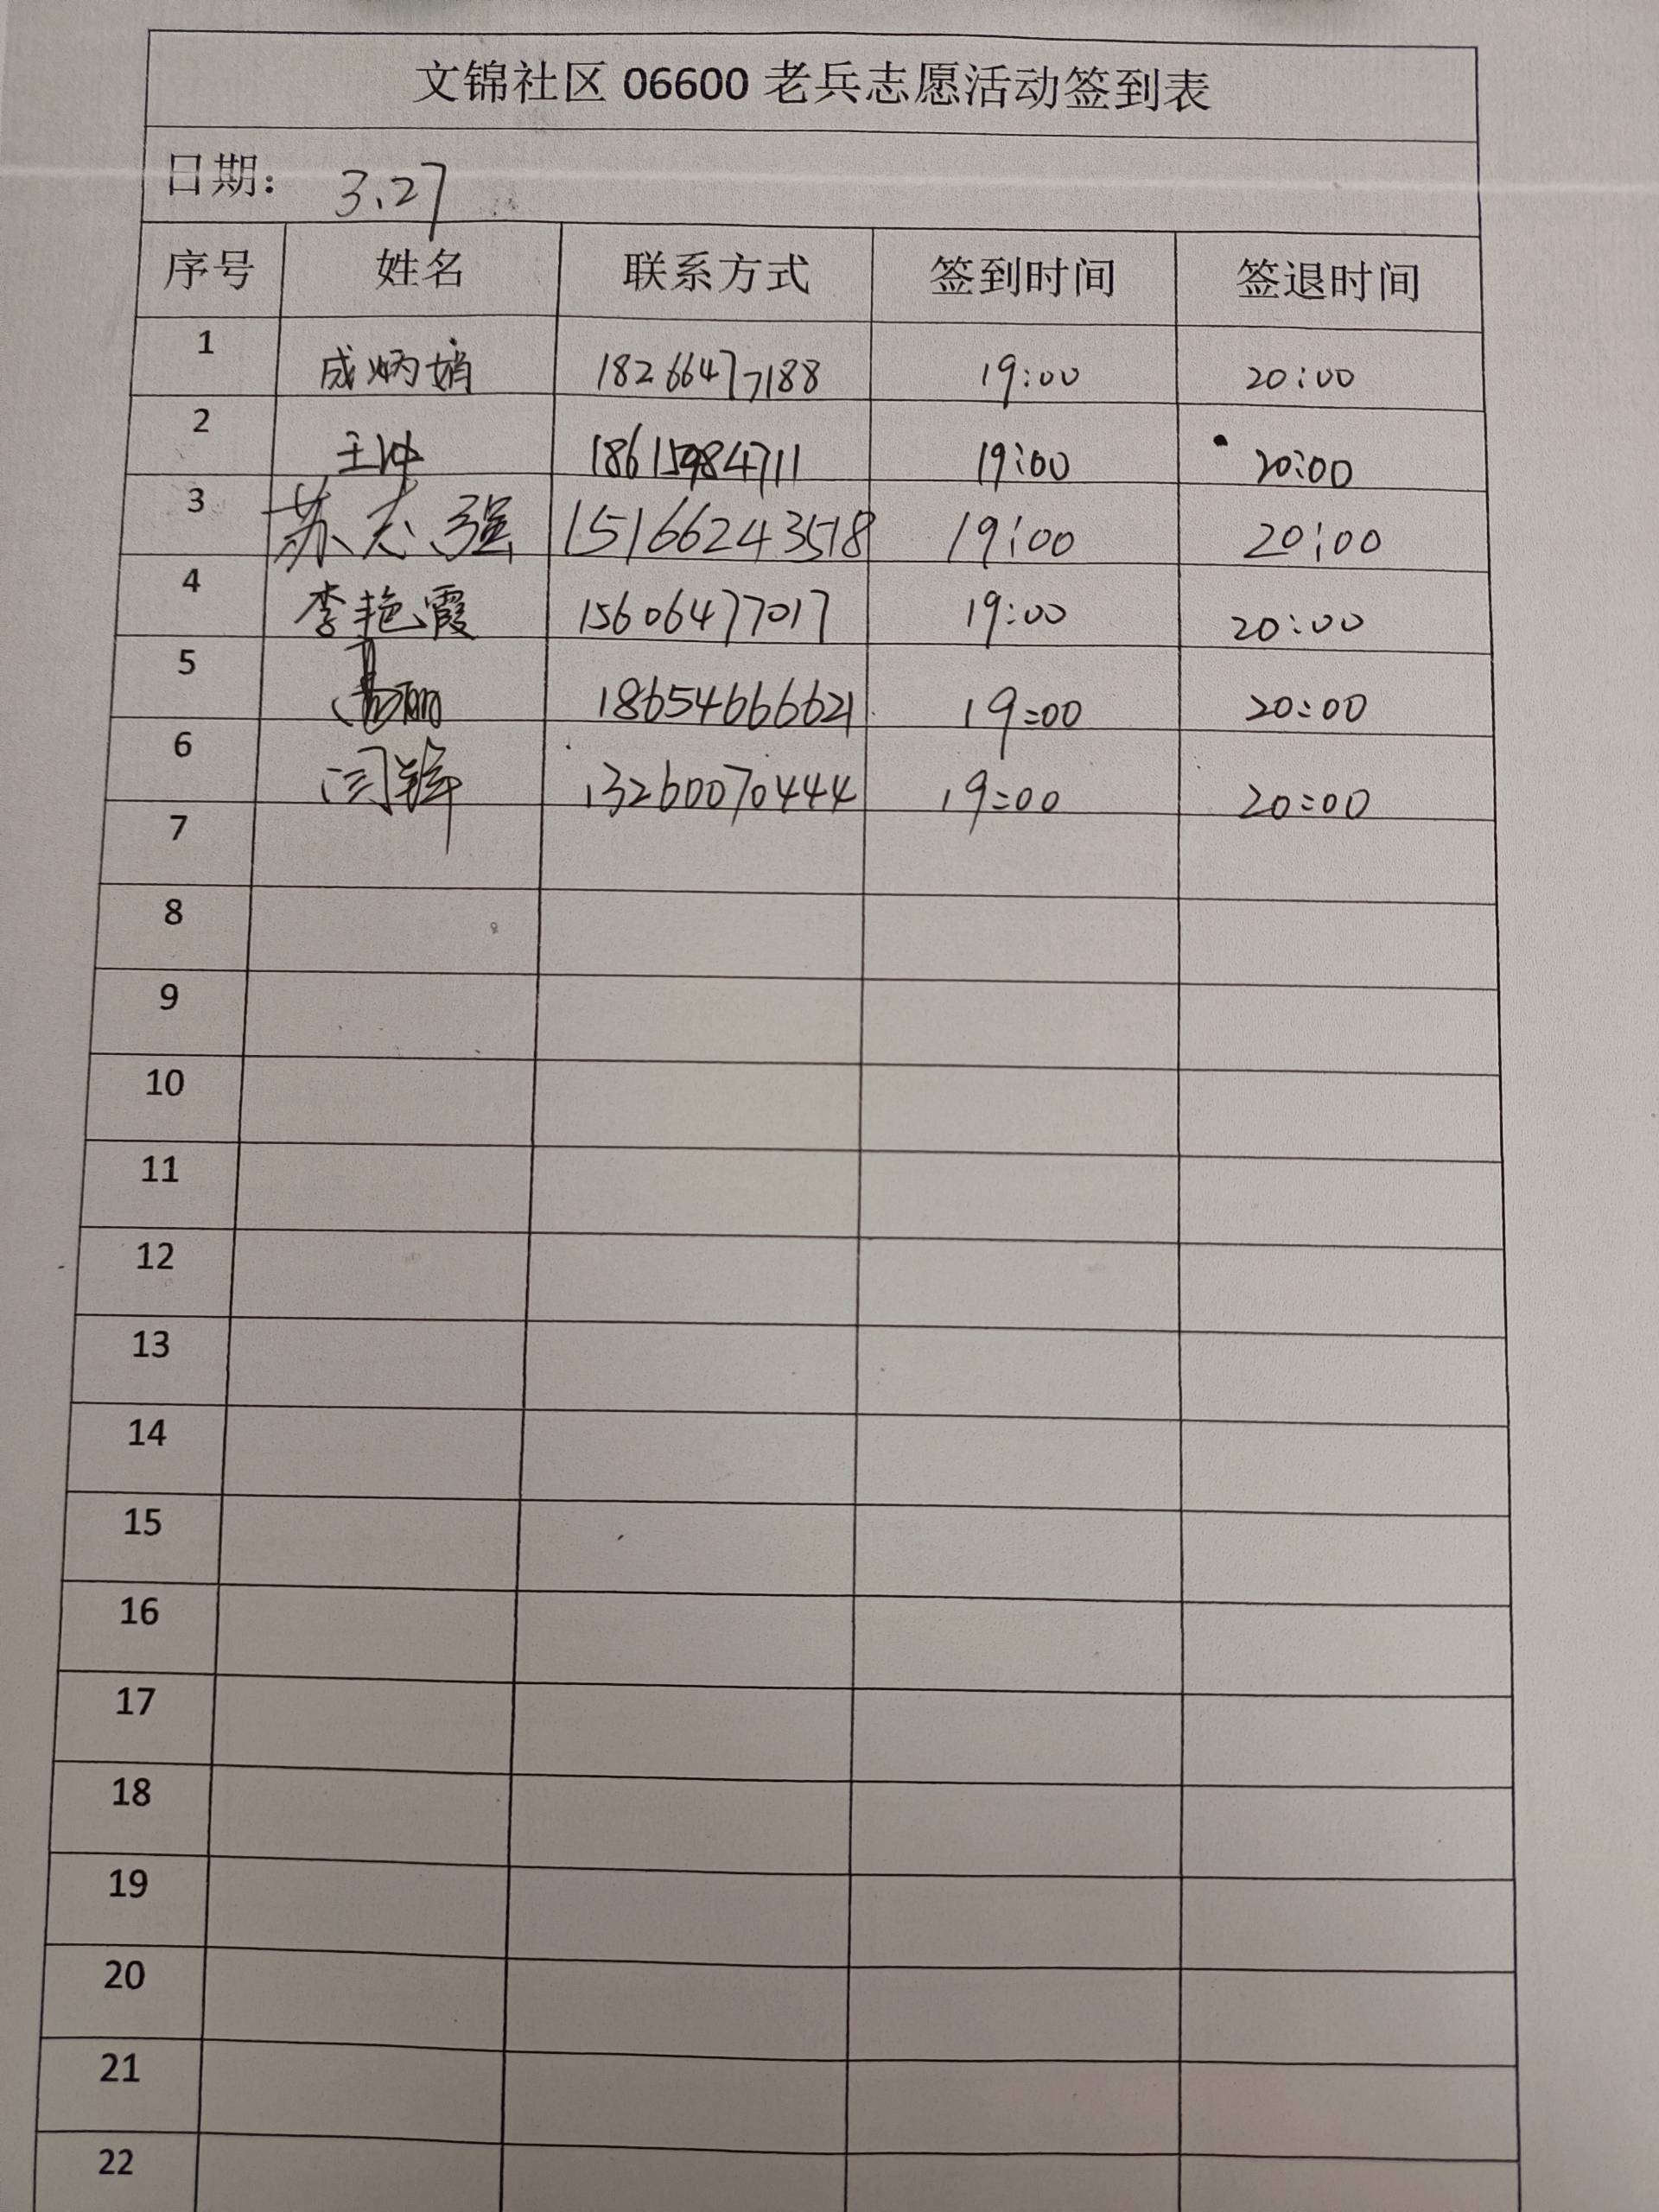 文锦社区 06600 老兵志愿活动签到表
日期： 3.27
序号 姓名 联系方式 签到时间 签退时间
1 成炳娟 18266477188 19:00 20:00
2 王冲 18615984711 19:00 20:00
3 苏志强 15166243518 19:00 20:00
4 李艳霞 15606477017 19:00 20:00
5 18654666621 19:00 20:00
6 闫锋 13260070444 19:00 20:00
7
8
9
10
11
12
13
14
15
16
17
18
19
20
21
22